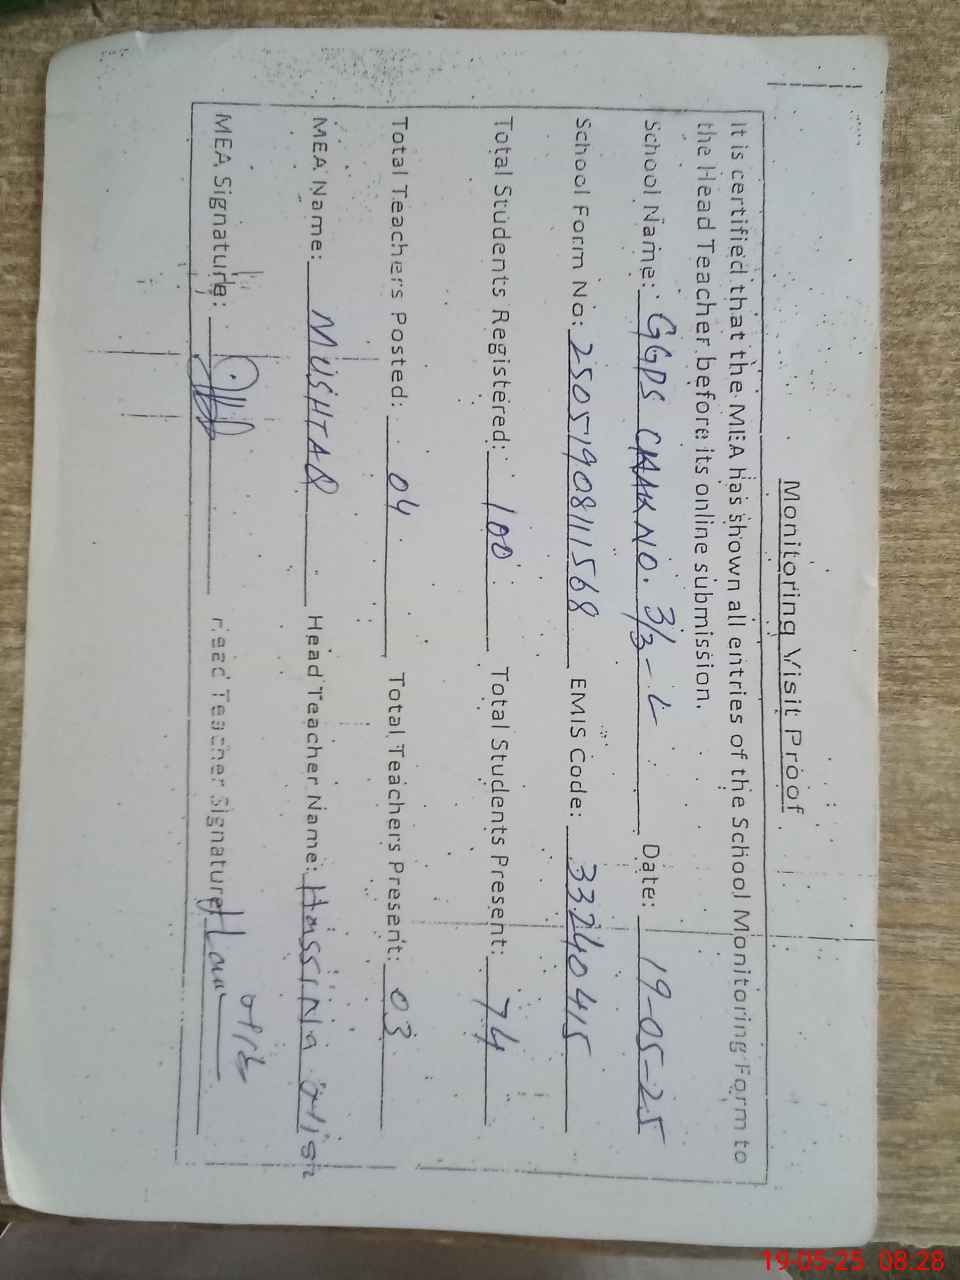 Monitoring Visit Proof
It is certified that the MEA has shown all entries of the School Monitoring Form to
the Head Teacher before its online submission.
School Name: GGPS CHAK NO. 3/3-L Date: 19-05-25
School Form No: 2505190811568 EMIS Code: 33240415
Total Students Registered: 100 Total Students Present: 74
Total Teachers Posted: 04 Total Teachers Present: 03
MEA Name: MUSHTAQ Head Teacher Name: Hassina
MEA Signature: Head Teacher Signature
19-05-25 08:28